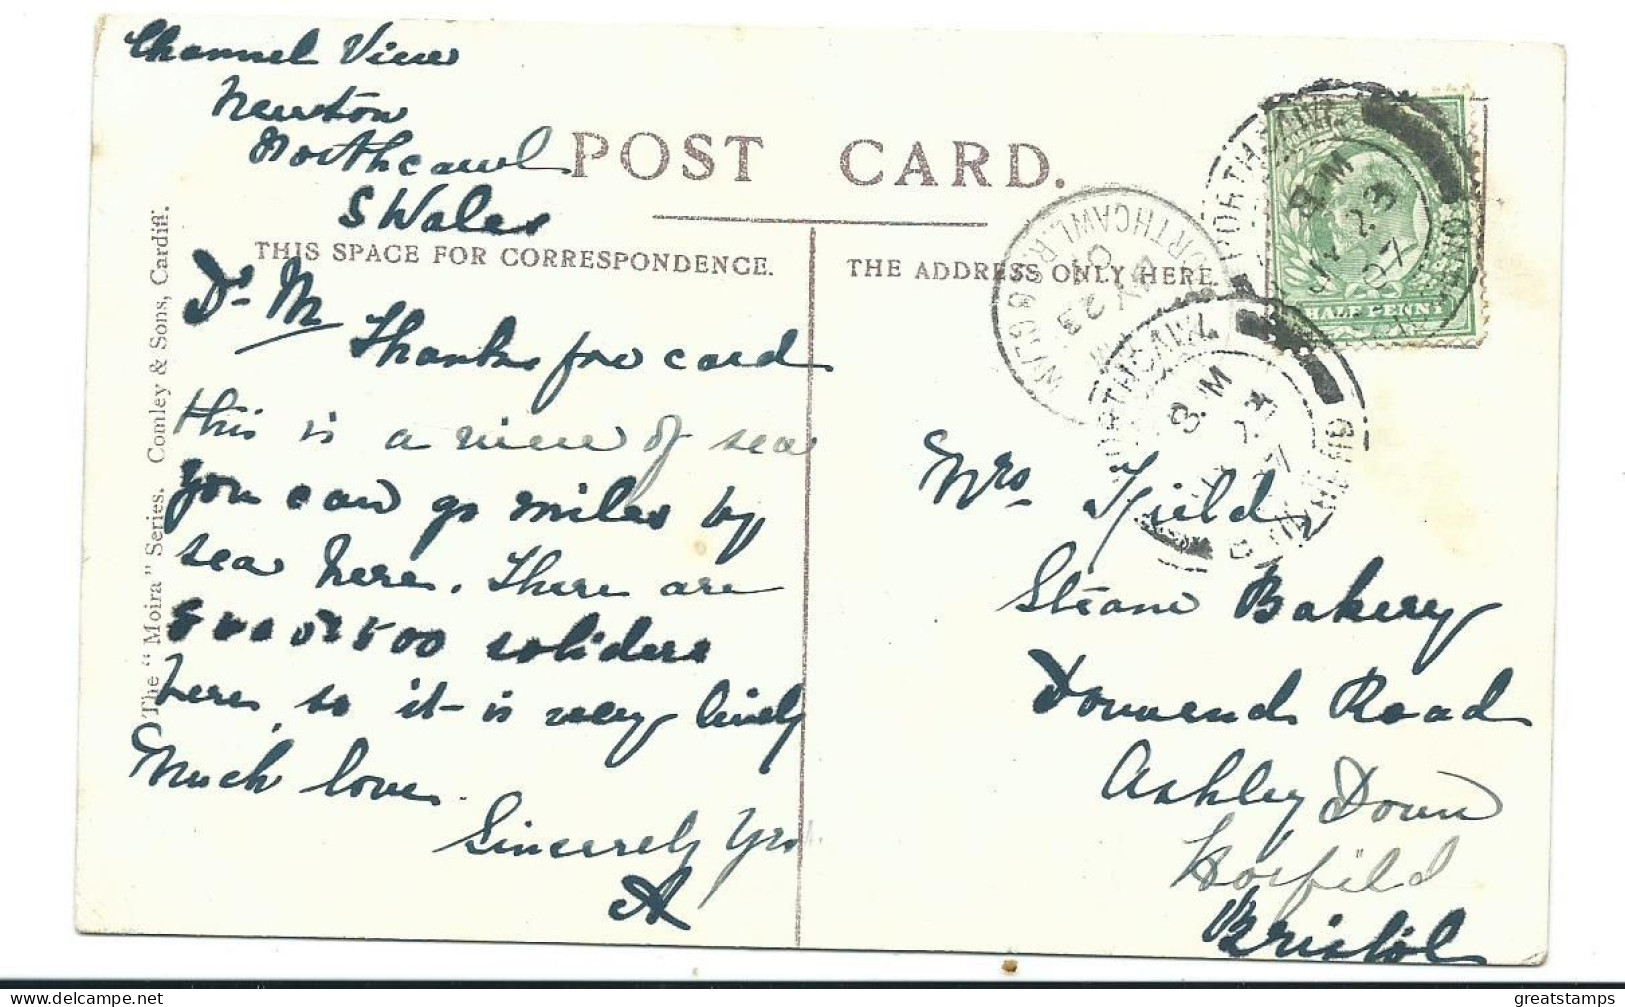 Channel View
Newton
Porthcawl
S Wales
POST CARD.
THIS SPACE FOR CORRESPONDENCE.
THE ADDRESS ONLY HERE.
The "Moira" Series. Comley & Sons, Cardiff.
Dr M
Thanks for card
this is a view of sea
you can go miles by
sea here. There are
500 soliders
here, so it is very lively
Much love.
Sincerely Yrs
A
Mrs Field
Steam Bakery
Downend Road
Ashley Down
Horfield
Bristol
PORTHCAWL
8 PM
JY 23
07
BRIDGEND
HALF PENNY
PORTHCAWL R.S.O.
JY 23
07
PORTHCAWL
8 PM
BRIDGEND
greatstamps